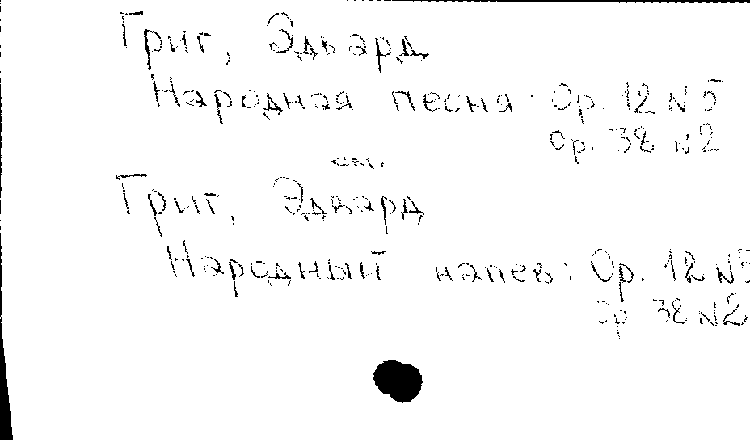 Григ, Эдвард
Народная песня. Op. 12 N 5
Op. 38 N 2
см.
Григ, Эдвард
Народный напев: Op. 12 N 5
Op 38 N 2